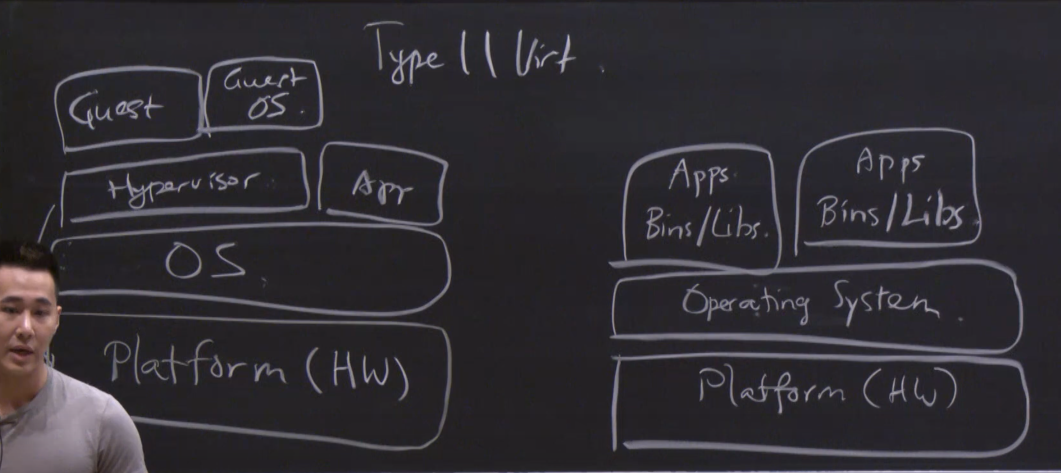 Type II Virt.
Guest
Guest
OS.
Hypervisor.
App
OS.
Platform (HW)
Apps.
Bins/Libs.
Apps
Bins/Libs.
Operating System.
Platform (HW)